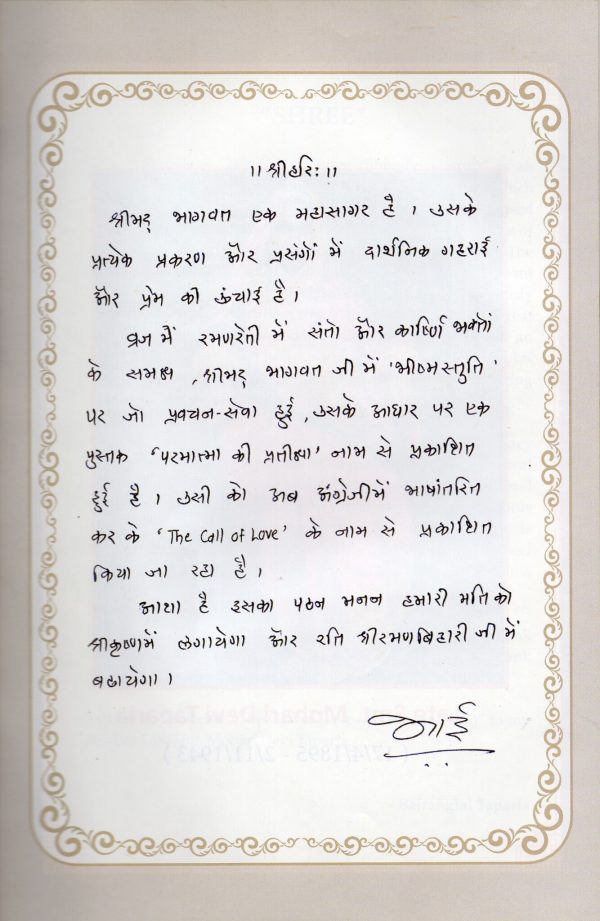 ॥ श्रीहरि: ॥
श्रीमद् भागवत एक महासागर है । उसके
प्रत्येक प्रकरण और प्रसंगों में दार्शनिक गहराई
और प्रेम की ऊंचाई है ।
व्रज में रमणरेती में संतो और कार्ष्णि भक्तों
के समक्ष , श्रीमद् भागवत जी में 'भीष्मस्तुति'
पर जो प्रवचन-सेवा हुई , उसके आधार पर एक
पुस्तक 'परमात्मा की प्रतीक्षा' नाम से प्रकाशित
हुई है । उसी को अब अंग्रेजी में भाषांतरित
कर के 'The Call of Love' के नाम से प्रकाशित
किया जा रहा है ।
आशा है इसका पठन मनन हमारी मति को
श्रीकृष्ण में लगायेगा और रति श्रीरमणबिहारी जी में
बढायेगा ।
भाई
"SHREE"
Late Smt. Mohari Devi Taparia
(17/4/1895 - 2/11/1943)